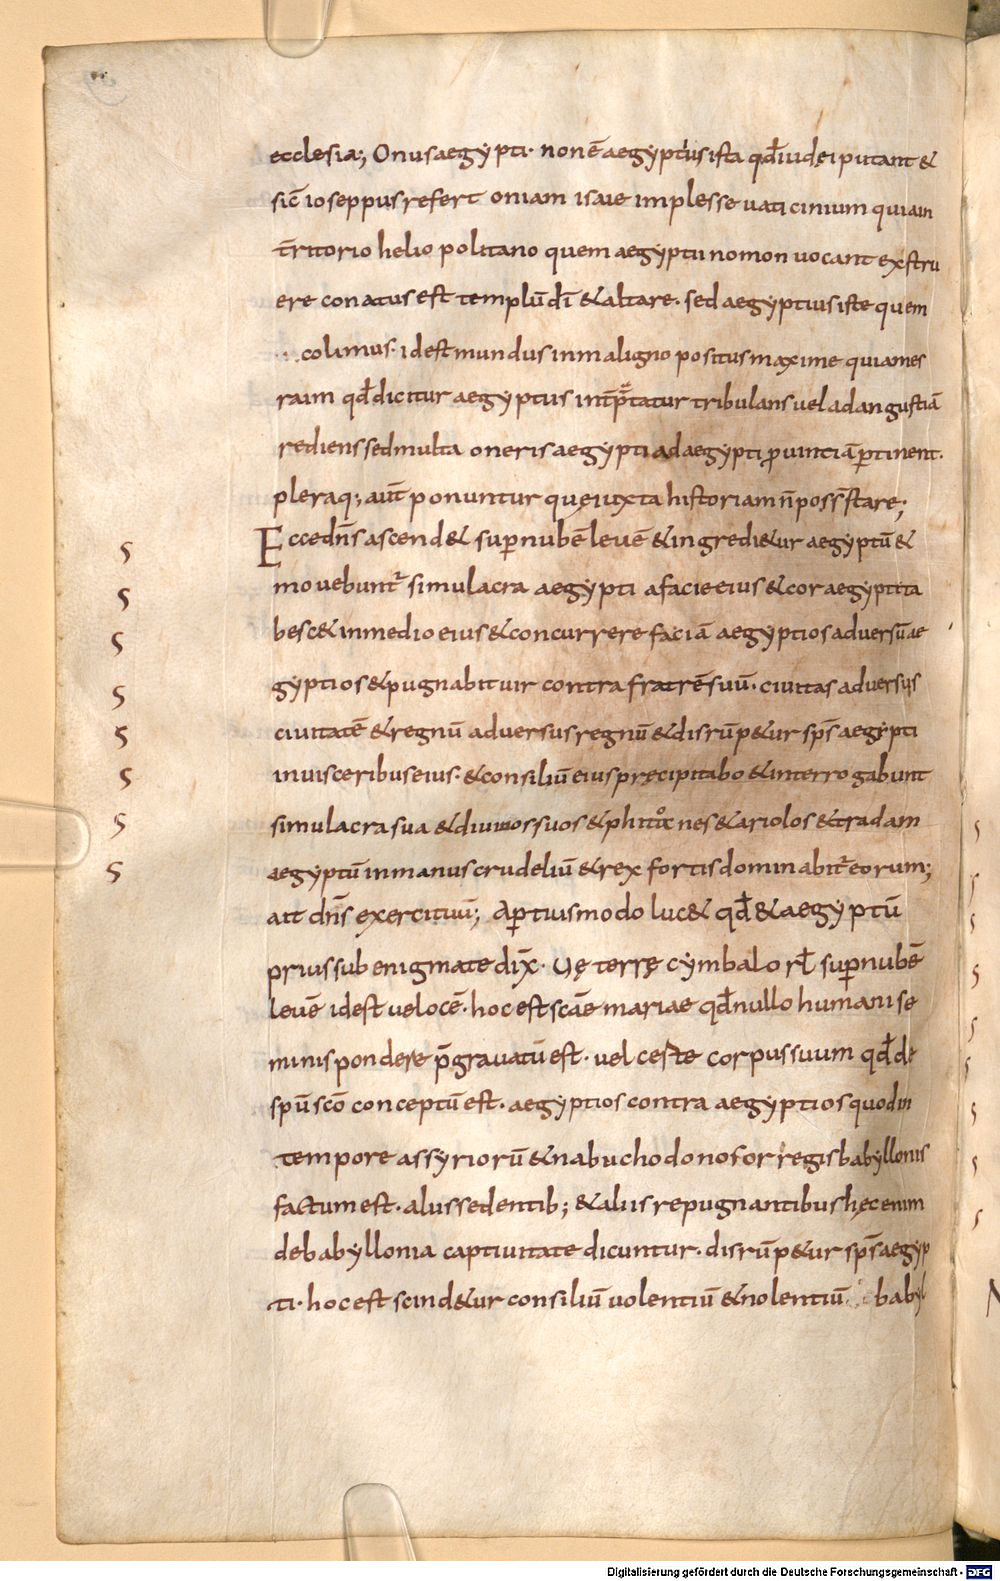 ecclesia; Onus aegypti· non ē aegyptus ista qđ iudęi putant &
sic̄ ioseppus refert oniam isaie implesse uaticinium quia in
t̄ritorio heliopolitano quem aegyptii nomon uocant exstru
ere conatus est templū dī & altare· sed aegyptius iste quem
colimus· id est mundus in maligno positus maxime quia mes
raim qđ dicitur aegyptus int̄p̄tatur tribulans uel ad angustiā
rediens sed multa oneris aegypti ad aegypti prouintiā ꝑtinent·
pleraq; aut̄ ponuntur quę iuxta historiam n̄ poss̄ stare;
Ecce dn̄s ascend& suꝑ nubē leuē & ingredi&ur aegyptū &
mouebunt̄ simulacra aegypti a facie eius & cor aegypti ta
besc& in medio eius & concurrere faciā aegyptios aduersū ae
gyptios & pugnabit uir contra fratrē suū· ciuitas aduersus
ciuitatē & regnū aduersus regnū & disrūp&ur sps̄ aegypti
in uisceribus eius· & consiliū eius pręcipitabo & interrogabunt
simulacra sua & diuinos suos & phitones & ariolos & tradam
aegyptū in manus crudeliū & rex fortis dominabit̄ eorum;
ait dn̄s exercituū; Aꝑtius modo luc& qđ & aegyptū
prius sub enigmate dix̄· Uę terrę cymbalo rł suꝑ nubē
leuē id est uelocē· hoc est scāe mariae qđ nullo humani se
minis pondere p̄grauatū est· uel certe corpus suum qđ de
spū scō conceptū est· aegyptios contra aegyptios quod in
tempore assyriorū & nabuchodonosor regis babyllonis
factum est· aliis sedentib; & aliis repugnantibus hęc enim
de babyllonia captiuitate dicuntur· disrūp&ur sps̄ aegyp
ti· hoc est scind&ur consiliū uolentiū & nolentiū babyl
Digitalisierung gefördert durch die Deutsche Forschungsgemeinschaft - DFG